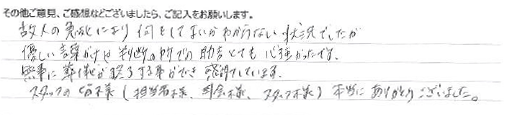 その他ご意見、ご感想などございましたら、ご記入をお願いします。
故人の急死により何をしてよいかわからない状況でしたが
優しい言葉がけや判断の所での助言とても心強かったです。
無事に葬儀が終了する事ができ感謝しています。
スタッフの皆様(担当者様、司会様、スタッフ様)本当にありがとうございました。